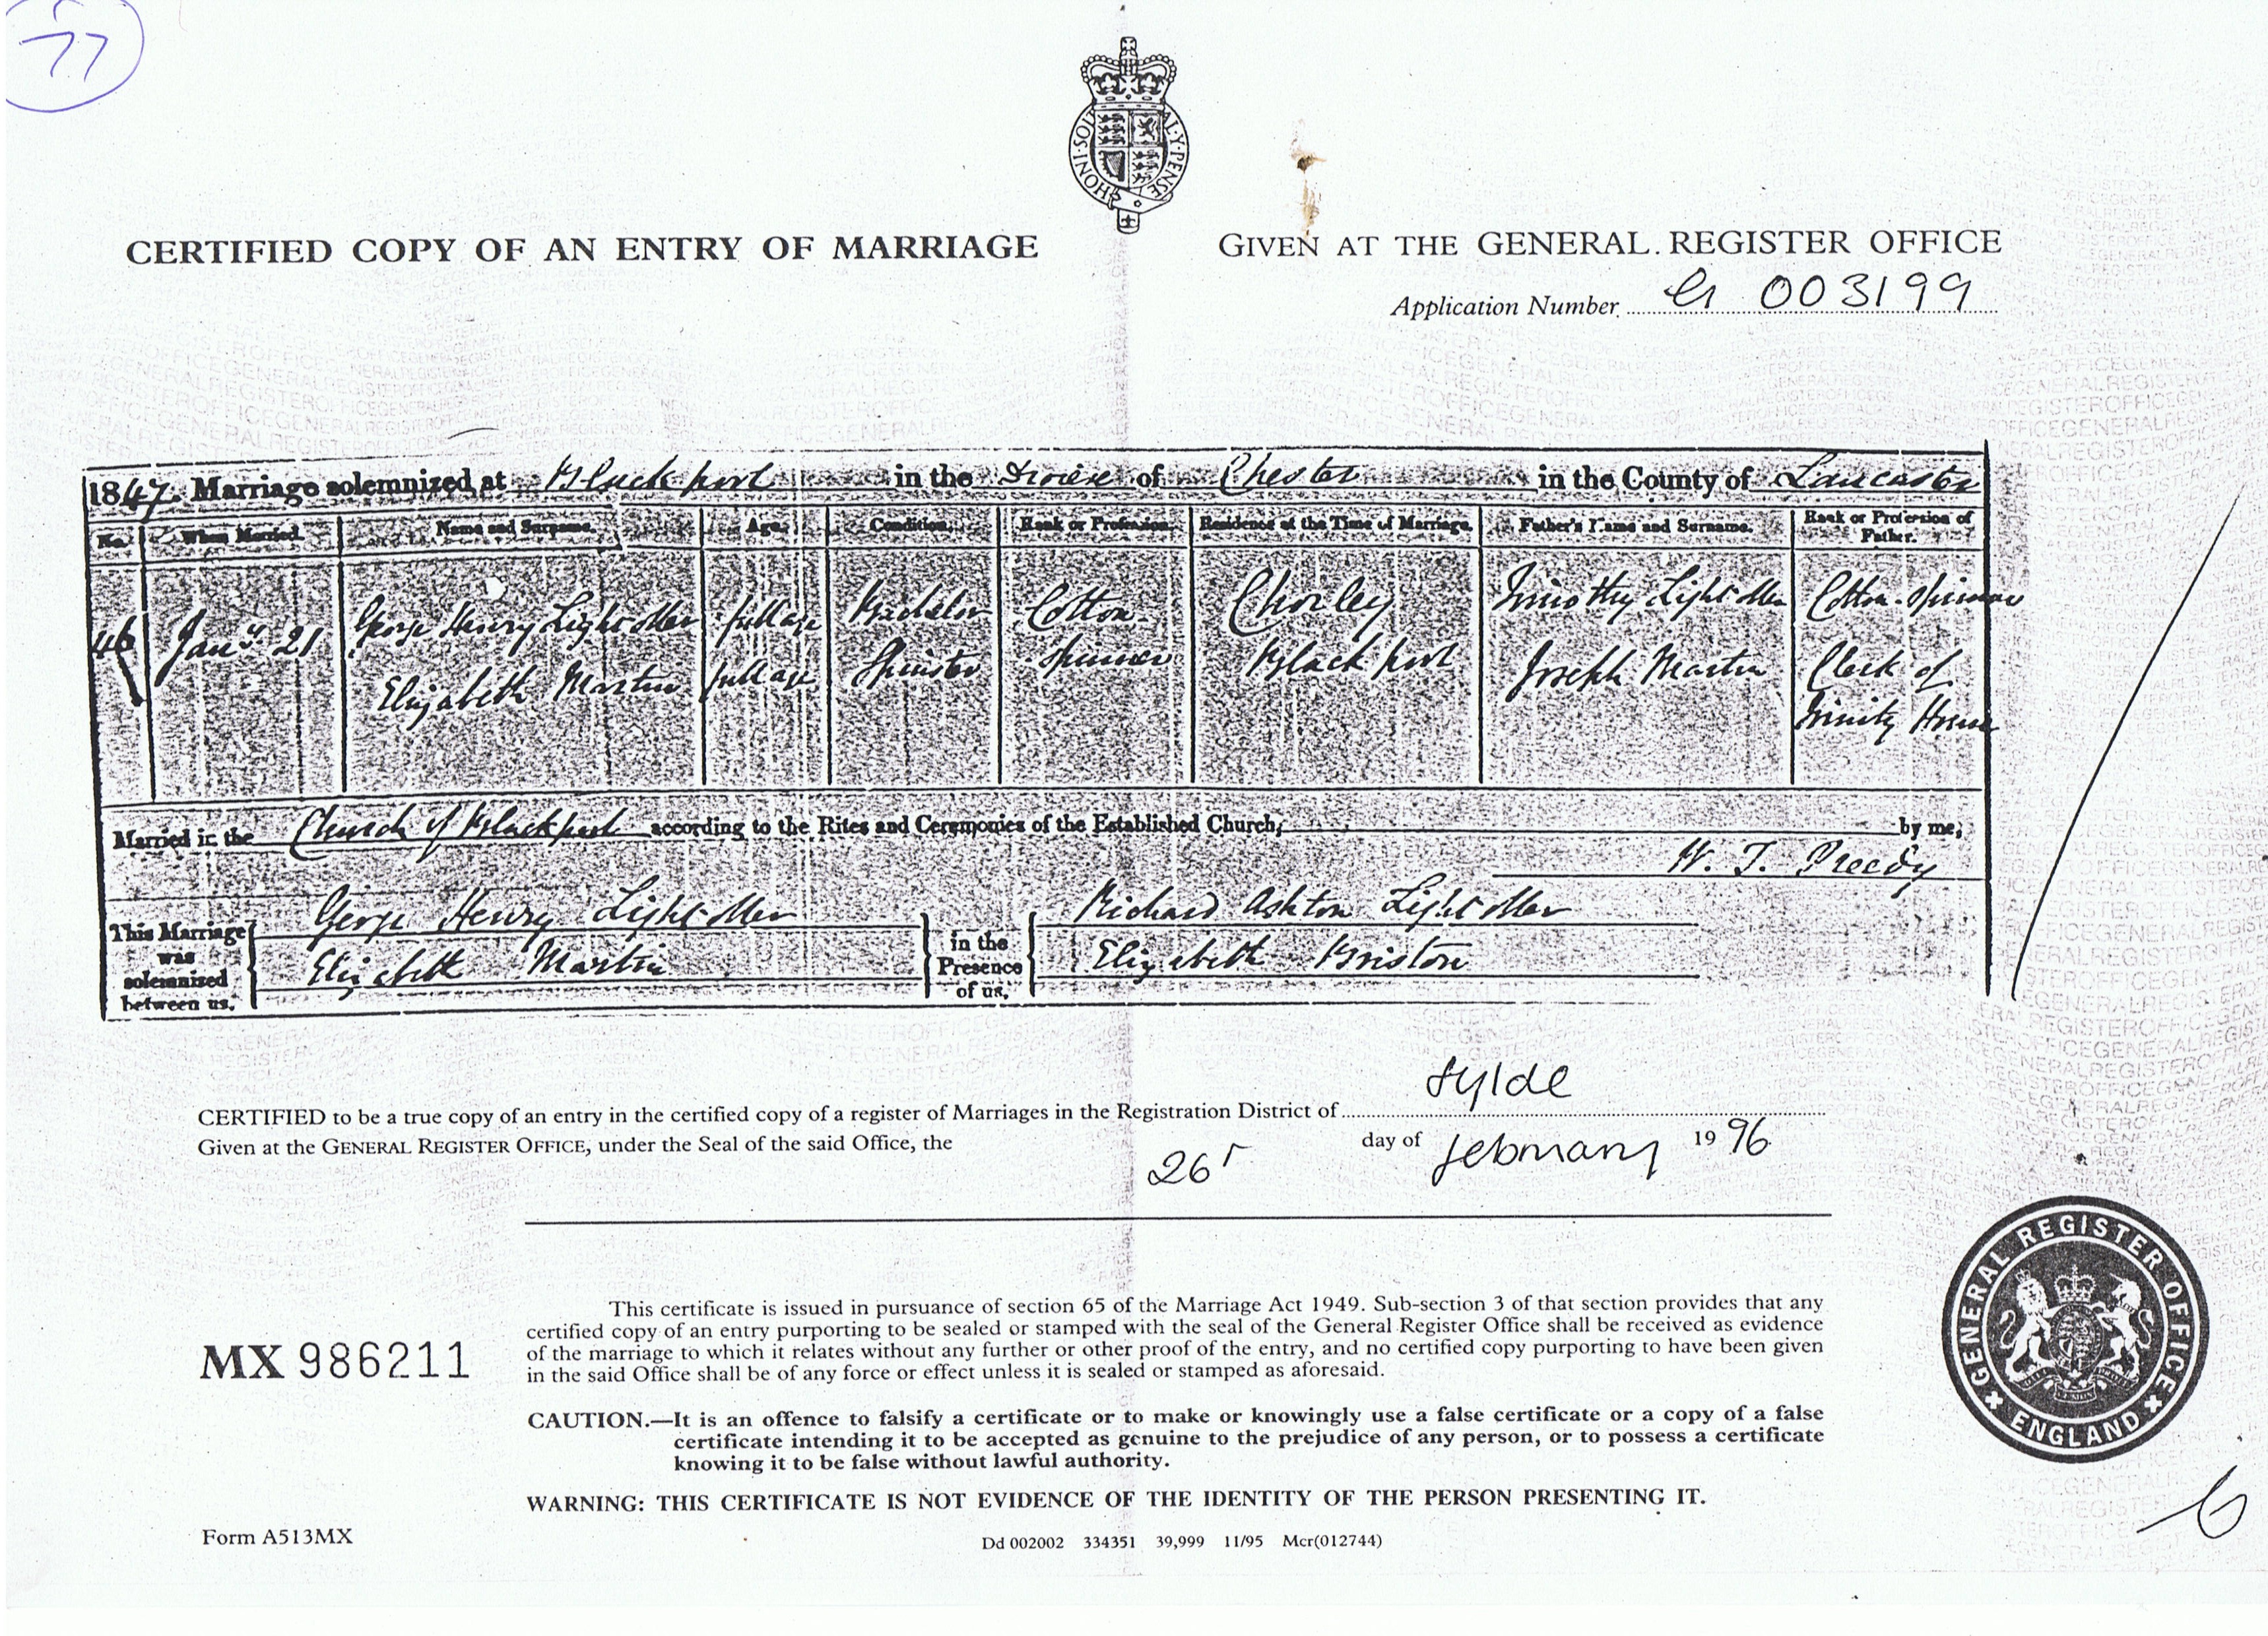 77
HONI·SOIT·Q ·MAL·Y·PENSE
CERTIFIED COPY OF AN ENTRY OF MARRIAGE
GIVEN AT THE GENERAL REGISTER OFFICE
Application Number G 003199
1847. Marriage solemnized at Blackpool in the Diocese of Chester in the County of Lancaster
No. When Married. Name and Surname. Age. Condition. Rank or Profession. Residence at the Time of Marriage. Father's Name and Surname. Rank or Profession of Father.
46 Jany 21 George Henry Lightoller full age Bachelor Cotton Spinner Chorley Timothy Lightoller Cotton Spinner
Elizabeth Martin full age Spinster Blackpool Joseph Martin Clerk of Trinity House
Married in the Church of Blackpool according to the Rites and Ceremonies of the Established Church, by me,
W. T. Preedy
This Marriage was solemnized between us, George Henry Lightoller Elizabeth Martin
in the Presence of us, Richard Ashton Lightoller Elizabeth Bristow
CERTIFIED to be a true copy of an entry in the certified copy of a register of Marriages in the Registration District of Fylde
Given at the GENERAL REGISTER OFFICE, under the Seal of the said Office, the 26 day of February 1996
This certificate is issued in pursuance of section 65 of the Marriage Act 1949. Sub-section 3 of that section provides that any
certified copy of an entry purporting to be sealed or stamped with the seal of the General Register Office shall be received as evidence
of the marriage to which it relates without any further or other proof of the entry, and no certified copy purporting to have been given
in the said Office shall be of any force or effect unless it is sealed or stamped as aforesaid.
MX 986211
CAUTION.—It is an offence to falsify a certificate or to make or knowingly use a false certificate or a copy of a false
certificate intending it to be accepted as genuine to the prejudice of any person, or to possess a certificate
knowing it to be false without lawful authority.
WARNING: THIS CERTIFICATE IS NOT EVIDENCE OF THE IDENTITY OF THE PERSON PRESENTING IT.
GENERAL REGISTER OFFICE
ENGLAND
Form A513MX
Dd 002002 334351 39,999 11/95 Mcr(012744)